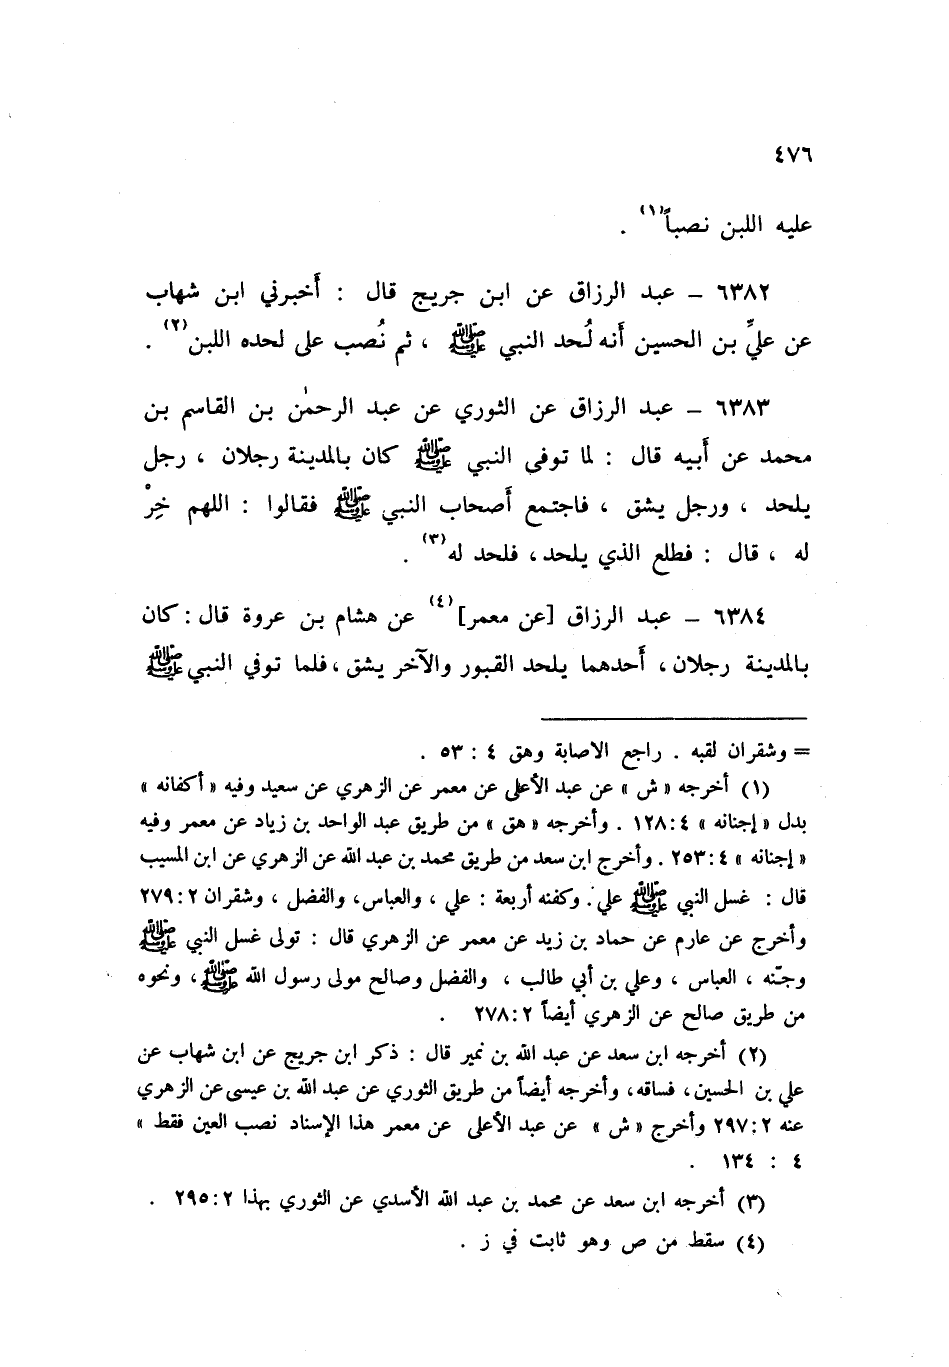 ٤٧٦
عليه اللبن نصباً(١) .
٦٣٨٢ – عبد الرزاق عن ابن جريج قال : أَخبرني ابن شهاب
عن عليِّ بن الحسين أَنه لُحد النبي ﷺ ، ثم نُصب على لحده اللبن(٢) .
٦٣٨٣ – عبد الرزاق عن الثوري عن عبد الرحمٰن بن القاسم بن
محمد عن أَبيه قال : لما توفي النبي ﷺ كان بالمدينة رجلان ، رجل
يلحد ، ورجل يشق ، فاجتمع أَصحاب النبي ﷺ فقالوا : اللهم خِرْ
له ، قال : فطلع الذي يلحد ، فلحد له(٣) .
٦٣٨٤ – عبد الرزاق [عن معمر](٤) عن هشام بن عروة قال : كان
بالمدينة رجلان ، أَحدهما يلحد القبور والآخر يشق ، فلما توفي النبي ﷺ
= وشقران لقبه . راجع الاصابة وهق ٤ : ٥٣ .
(١) أخرجه « ش » عن عبد الأعلى عن معمر عن الزهري عن سعيد وفيه « أكفانه »
بدل « إجنانه » ٤ : ١٢٨ . وأخرجه « هق » من طريق عبد الواحد بن زياد عن معمر وفيه
« إجنانه » ٤ : ٢٥٣ . وأخرج ابن سعد من طريق محمد بن عبد الله عن الزهري عن ابن المسيب
قال : غسل النبي ﷺ علي . وكفنه أربعة : علي ، والعباس ، والفضل ، وشقران ٢ : ٢٧٩
وأخرج عن عارم عن حماد بن زيد عن معمر عن الزهري قال : تولى غسل النبي ﷺ
وجنّه ، العباس ، وعلي بن أبي طالب ، والفضل وصالح مولى رسول الله ﷺ ، ونحوه
من طريق صالح عن الزهري أيضاً ٢ : ٢٧٨ .
(٢) أخرجه ابن سعد عن عبد الله بن نمير قال : ذكر ابن جريج عن ابن شهاب عن
علي بن الحسين ، فساقه ، وأخرجه أيضاً من طريق الثوري عن عبد الله بن عيسى عن الزهري
عنه ٢ : ٢٩٧ وأخرج « ش » عن عبد الأعلى عن معمر هذا الإسناد نصب العين فقط »
٤ : ١٣٤ .
(٣) أخرجه ابن سعد عن محمد بن عبد الله الأسدي عن الثوري بهذا ٢ : ٢٩٥ .
(٤) سقط من ص وهو ثابت في ز .